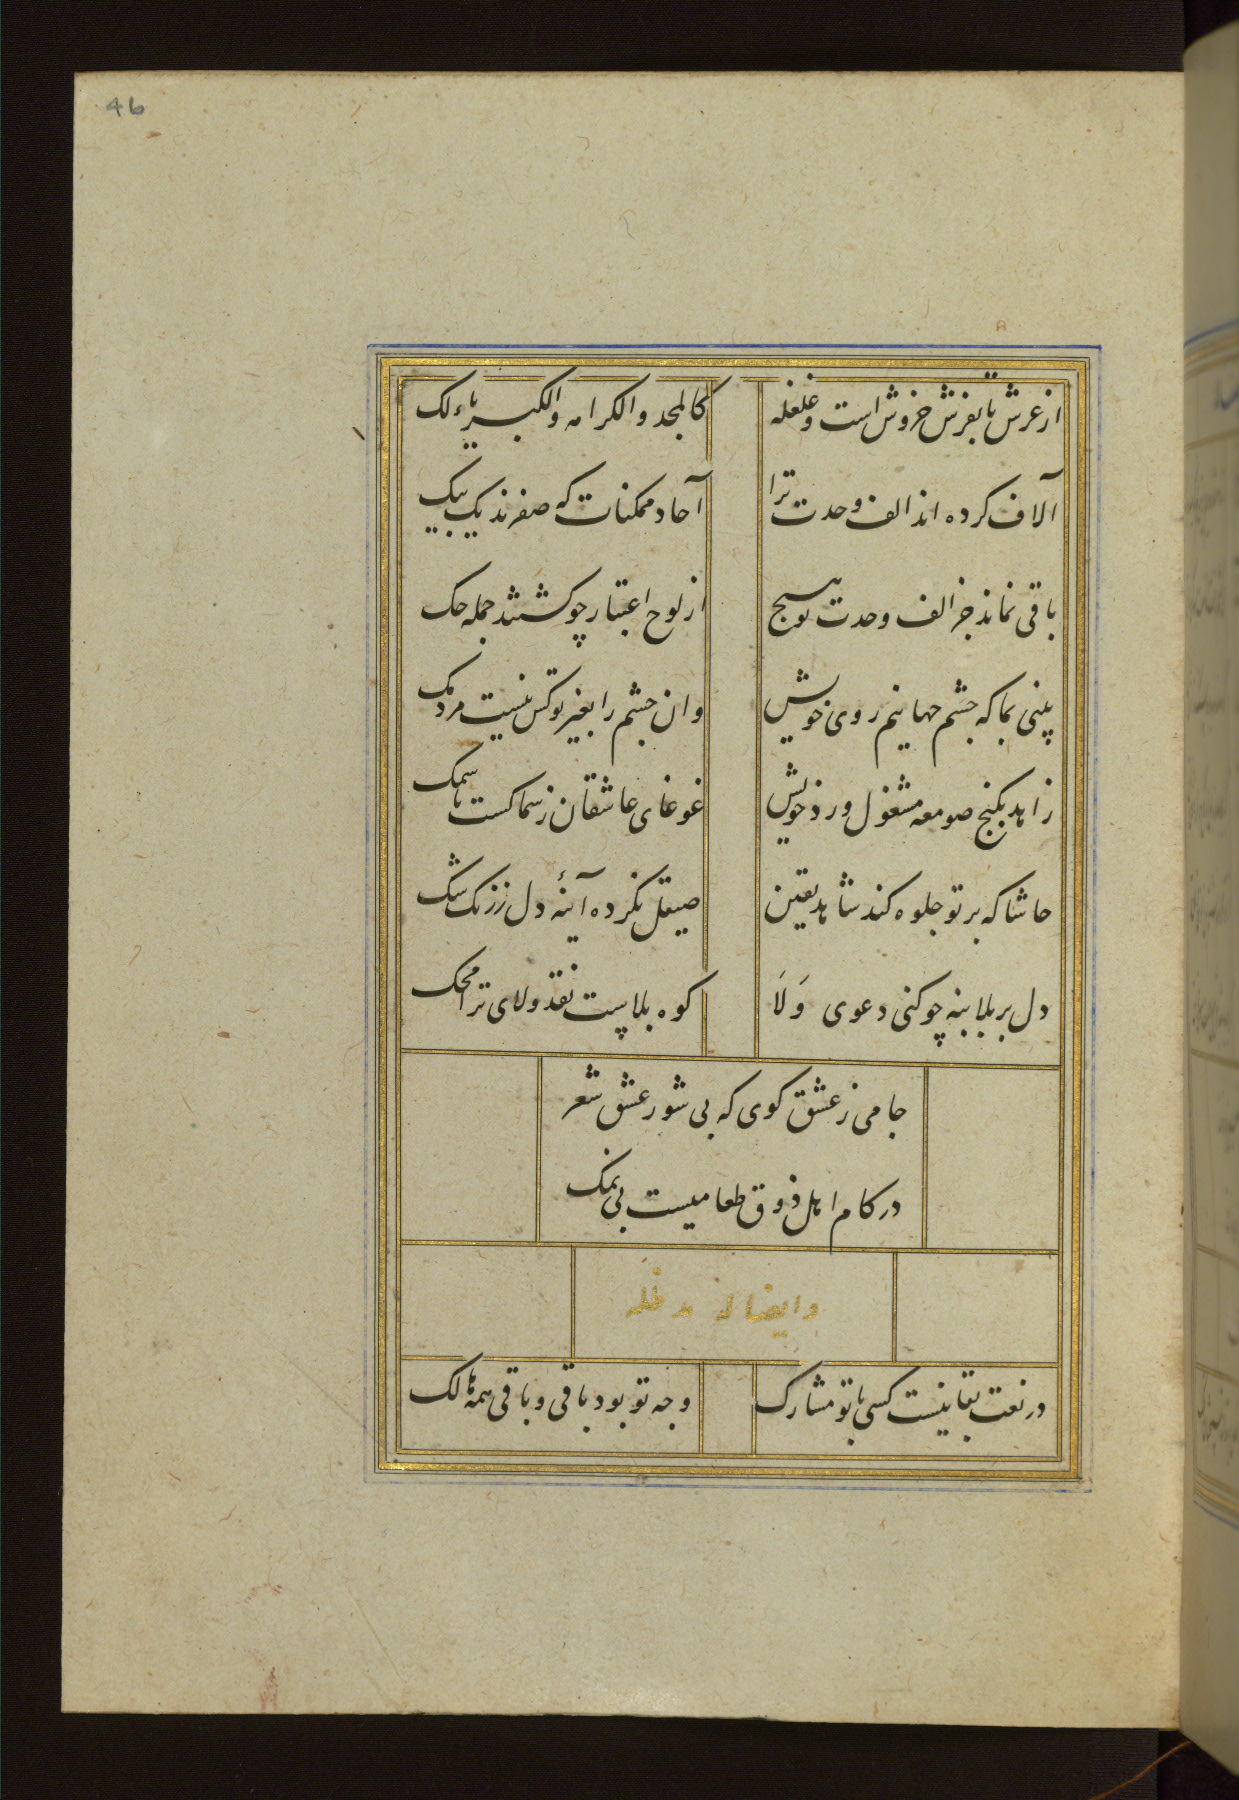 46
از عرش تا بفرش خروش است و غلغله
کالمجد والکرامه والکبریاء لک
آلاف کرده اند الف وحدت ترا
آحاد ممکنات که صفرند یک بیک
باقی نماند جز الف وحدت تو هیچ
از لوح اعتبار چو کشتند جمله حک
بینی بما که چشم جهانیم روی خویش
وان چشم را بغیر تو کس نیست مردمک
زاهد بکنج صومعه مشغول ورد خویش
غوغای عاشقان ز سماکست تا سمک
حاشا که بر تو جلوه کند شاهد یقین
صیقل نکرده آینهٔ دل ز زنک شک
دل بر بلا بنه چو کنی دعوی وَلَا
کوه بلا پست نقد ولای ترا محک
جامی ز عشق کوی که بی شور عشق شعر
در کام اهل ذوق طعامیست بی نمک
وایضا له مد ظله
در نعت بقا نیست کسی با تو مشارک
وجه تو بود باقی و باقی همه هالک